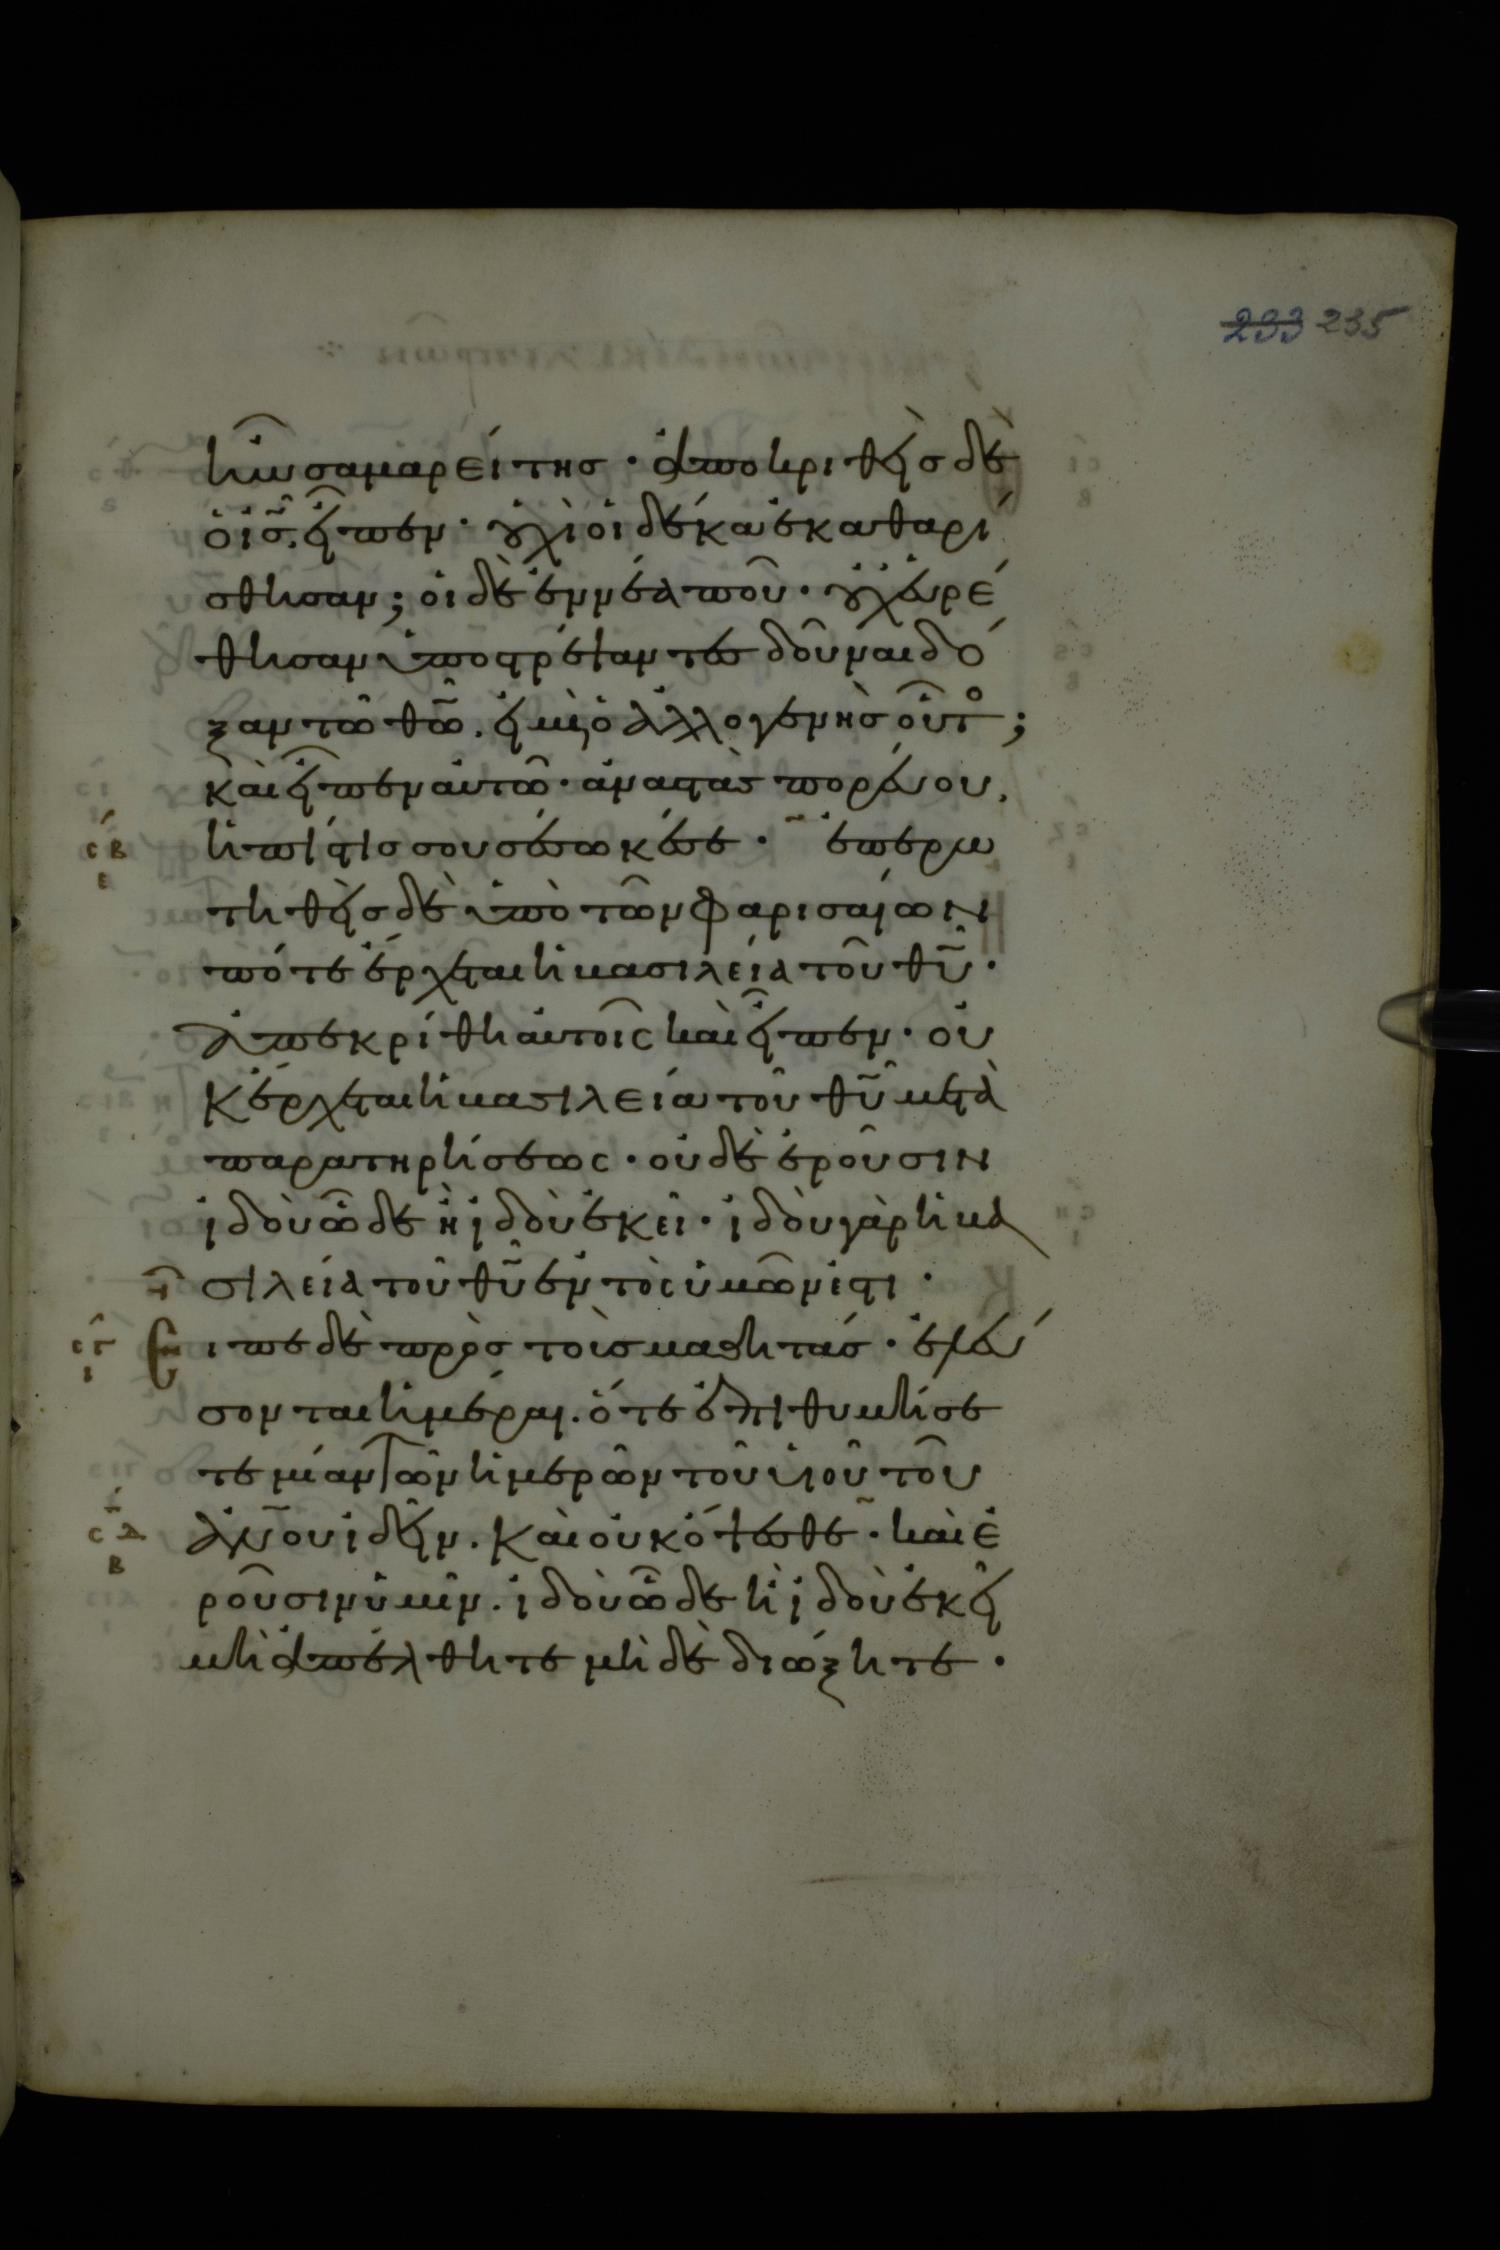 233 235
ἦν σαμαρείτης · ἀποκριθεὶς δὲ
ὁ ις̅ εἶπεν · οὐχὶ οἱ δέκα ἐκαθαρί
σθησαν ; οἱ δὲ ἐννέα ποῦ · οὐχ εὑρέ
θησαν ὑποστρέψαντες δοῦναι δό
ξαν τῶ θω̅ . εἰ μὴ ὁ ἀλλογενὴς οὗτος ;
καὶ εἶπεν αὐτῶ · ἀναστὰς πορεύου .
ἡ πίστις σου σέσωκέ σε · ἐπερω
τηθεὶς δὲ ὑπὸ τῶν φαρισαίων
πότε ἔρχεται ἡ βασιλεία τοῦ θυ̅ ·
ἀπεκρίθη αὐτοῖς καὶ εἶπεν · οὐ
κ ἔρχεται ἡ βασιλεία τοῦ θυ̅ μετὰ
παρατηρήσεως · οὐδὲ ἐροῦσιν
ἰδοὺ ὧδε ἢ ἰδοὺ ἐκεῖ · ἰδοὺ γὰρ ἡ βα
σιλεία τοῦ θυ̅ ἐντὸς ὑμῶν ἐστι ·
Εἶπε δὲ πρὸς τοὺς μαθητάς · ἐλεύ
σονται ἡμέραι . ὅτε ἐπιθυμήσε
τε μίαν τῶν ἡμερῶν τοῦ υἱοῦ τοῦ
ἀνου̅ ἰδεῖν . καὶ οὐκ ὄψεσθε · καὶ ἐ
ροῦσιν ὑμῖν . ἰδοὺ ὧδε ἢ ἰδοὺ ἐκεῖ
μὴ ἀπέλθητε μὴ δὲ διώξητε ·